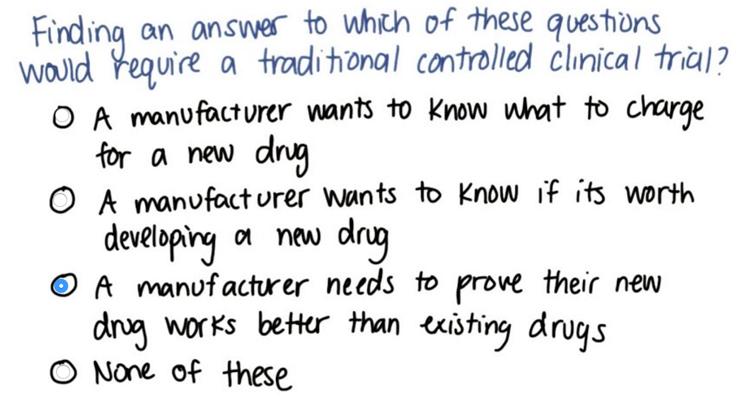 Finding an answer to which of these questions
would require a traditional controlled clinical trial?
A manufacturer wants to know what to charge
for a new drug
A manufacturer wants to know if its worth
developing a new drug
A manufacturer needs to prove their new
drug works better than existing drugs
None of these